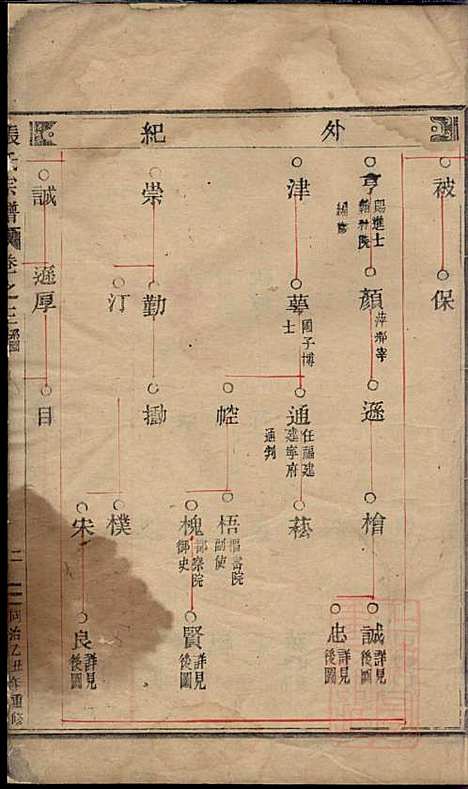 外紀
被
保
亨 賜進士翰林院編修
顏 萍鄉宰
遜
檜
誠 詳見後圖
忠 詳見後圖
津
蕚 國子博士
通 任福建建寧府通判
菘
崆
梧 樞密院副使
槐 都察院御史
賢 詳見後圖
崇
勤
汀
勱
樸
宋
良 詳見後圖
張氏宗譜 卷之三
二
同治乙丑年重修
誠
遜厚
目